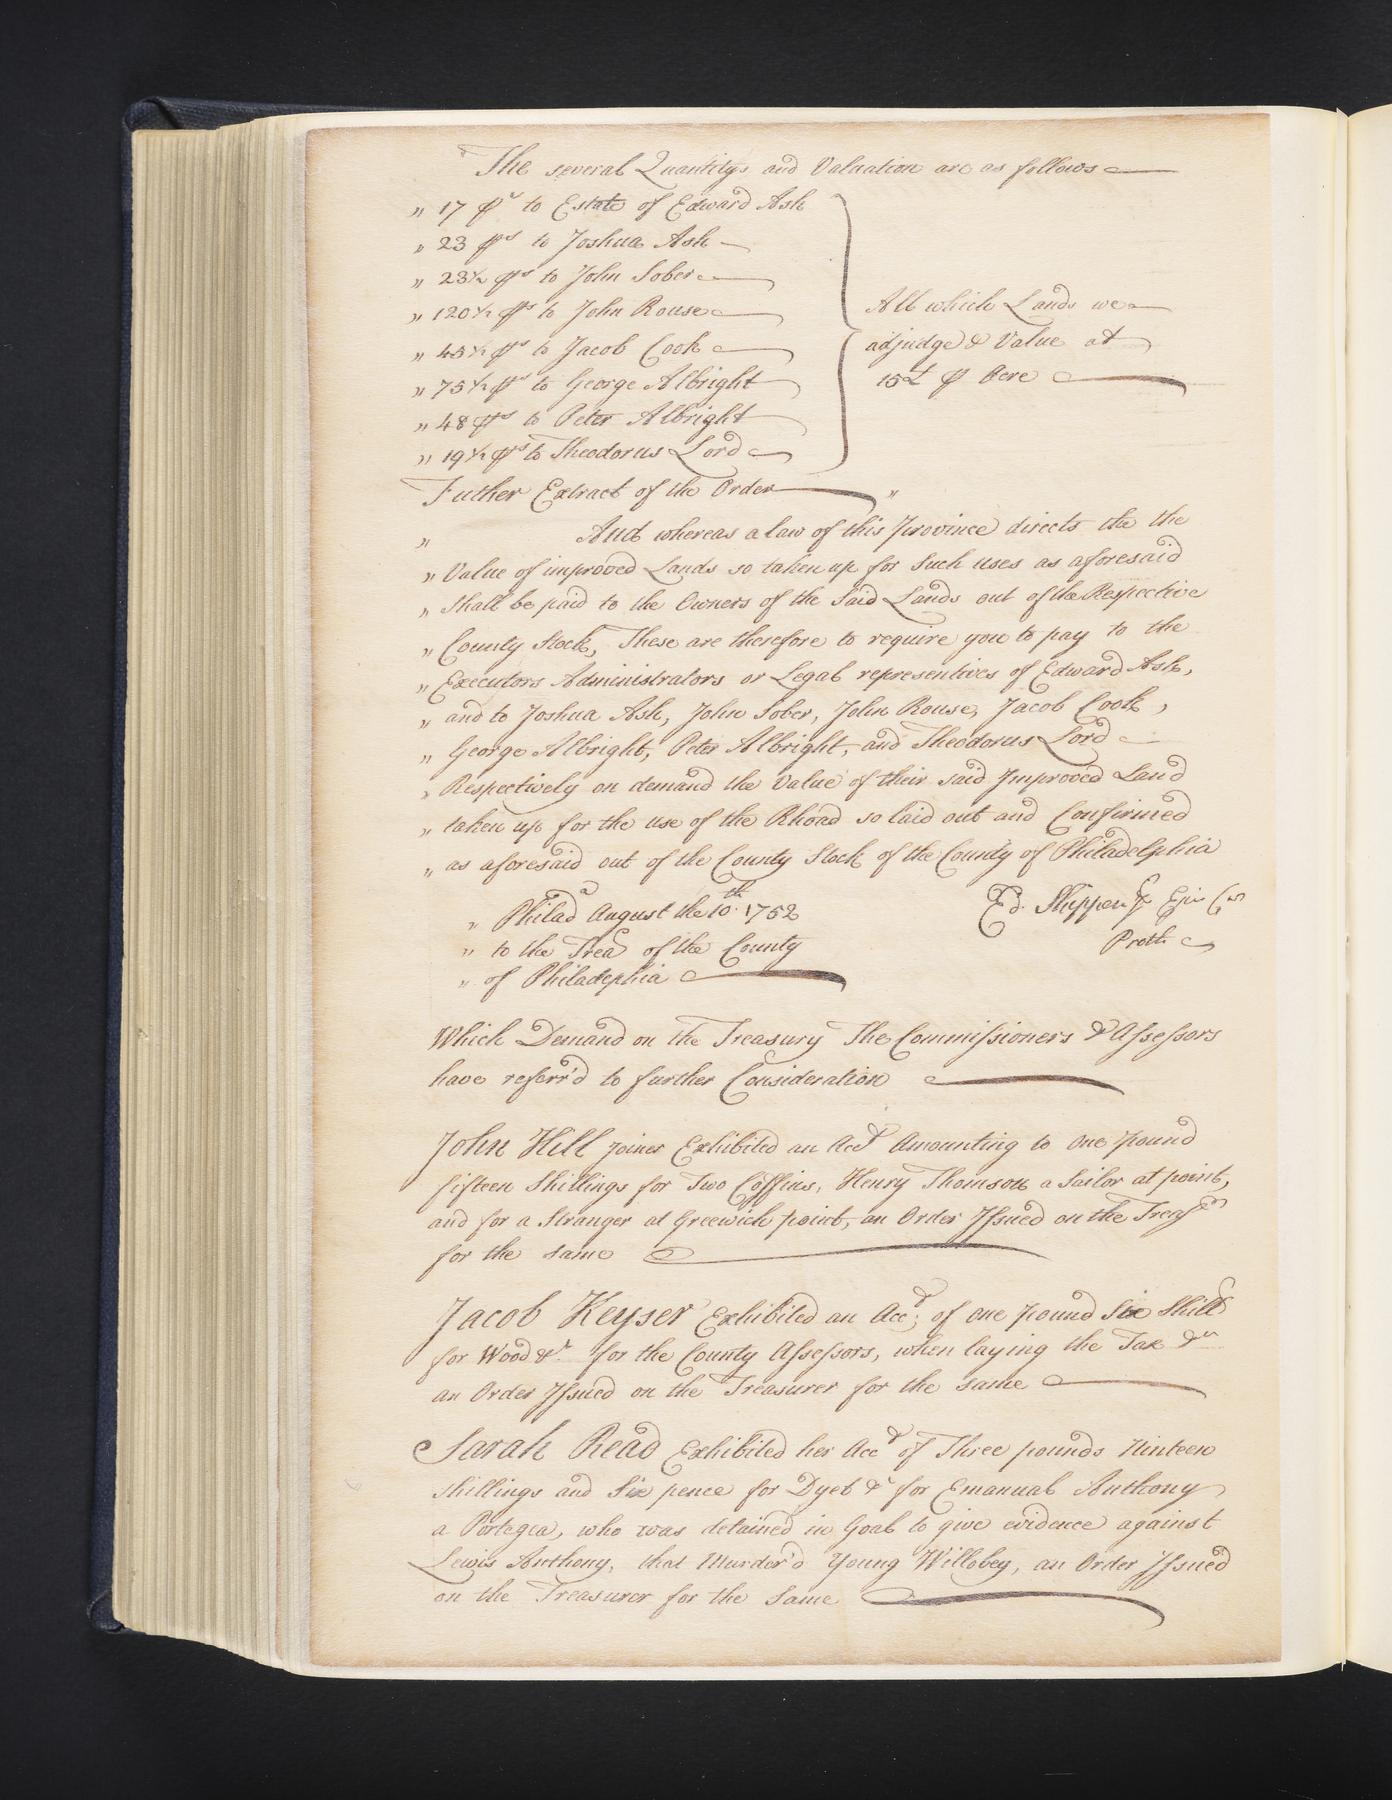 The several Quantitys and Valuation are as follows
" 17 prs to Estate of Edward Ash
" 23 prs to Joshua Ash
" 23½ prs to John Sober
" 120½ prs to John Rouse
" 45½ prs to Jacob Cook
" 75½ prs to George Albright
" 48 prs to Peter Albright
" 19½ prs to Theodorus Lord
All which Lands we
adjudge & Value at
15£ ⅌ Acre
Futher Extract of the Order "
" And whereas a law of this Province directs the the
" Value of improved Lands so taken up for Such uses as aforesaid
" Shall be paid to the Owners of the Said Lands out of the Respective
" County Stock, These are therefore to require you to pay to the
" Executors Administrators or Legal representives of Edward Ash,
" and to Joshua Ash, John Sober, John Rouse, Jacob Cook,
" George Albright, Peter Albright, and Theodorus Lord
" Respectively on demand the Value of their said Improved Land
" taken up for the use of the Rhoad so laid out and Confirmed
" as aforesaid out of the County Stock of the County of Philadelphia
" Philada August the 10th 1752
Ed. Shippen
" to the Trea of the County
Proth
" of Philadephia
Which Demand on the Treasury The Commissioners & Assessors
have referr'd to further Consideration
John Hill Joiner Exhibited an Acct Amounting to One pound
fifteen Shillings for Two Coffins, Henry Thomson a Sailor at point,
and for a Stranger at Greewich point, an Order Issued on the Treasr
for the same
Jacob Keyser Exhibited an Acct; of one pound Six Shills
for Wood &c. for the County Assessors, when laying the Tax &c
an Order Issued on the Treasurer for the same
Sarah Read Exhibited her Acct of Three pounds Ninteen
Shillings and Six pence for Dyet &c for Emanual Anthony
a Portegea, who was detained in Goal to give evidence against
Lewis Anthony, that Murder'd Young Willobey, an Order Issued
on the Treasurer for the Same